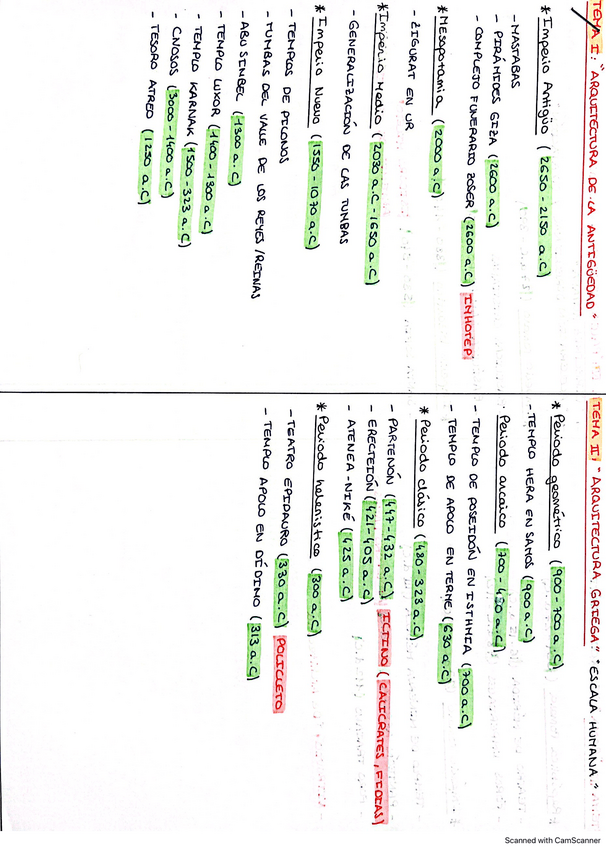 TEMA I: "ARQUITECTURA DE LA ANTIGÜEDAD"
* Imperio Antigüo (2650-2150 a.C)
- MASTABAS
- PIRÁMIDES GIZA (2600 a.C)
- COMPLEJO FUNERARIO ZOSER (2600 a.C) INHOTEP
* Mesopotamia (2000 a.C)
- ZIGURAT EN UR
* Imperio Medio (2030 a.C - 1650 a.C)
- GENERALIZACIÓN DE LAS TUMBAS
* Imperio Nuevo (1550 - 1070 a.C)
- TEMPLOS DE PILONOS
- TUMBAS DEL VALLE DE LOS REYES/REINAS
- ABU SINBEL (1300 a.C)
- TEMPLO LUXOR (1400-1300 a.C)
- TEMPLO KARNAK (1500-323 a.C)
- CNOSOS (3000-1400 a.C)
- TESORO ATREO (1250 a.C)
TEMA II: "ARQUITECTURA GRIEGA." "ESCALA HUMANA."
* Periodo geométrico (900-700 a.C)
- TEMPLO HERA EN SAMOS (900 a.C)
Periodo arcaico (700-480 a.C)
- TEMPLO DE POSEIDÓN EN ISTHMIA (700 a.C)
- TEMPLO DE APOLO EN TERME (630 a.C)
* Periodo clásico (480-323 a.C)
- PARTENÓN (447-432 a.C) ICTINO (CALICRATES, FIDIAS)
- ERECTEIÓN (421-405 a.C)
- ATENEA-NIKÉ (425 a.C)
* Periodo helenístico (300 a.C)
- TEATRO EPIDAURO (330 a.C) POLICLETO
- TEMPLO APOLO EN DÍDIMO (313 a.C)
Scanned with CamScanner